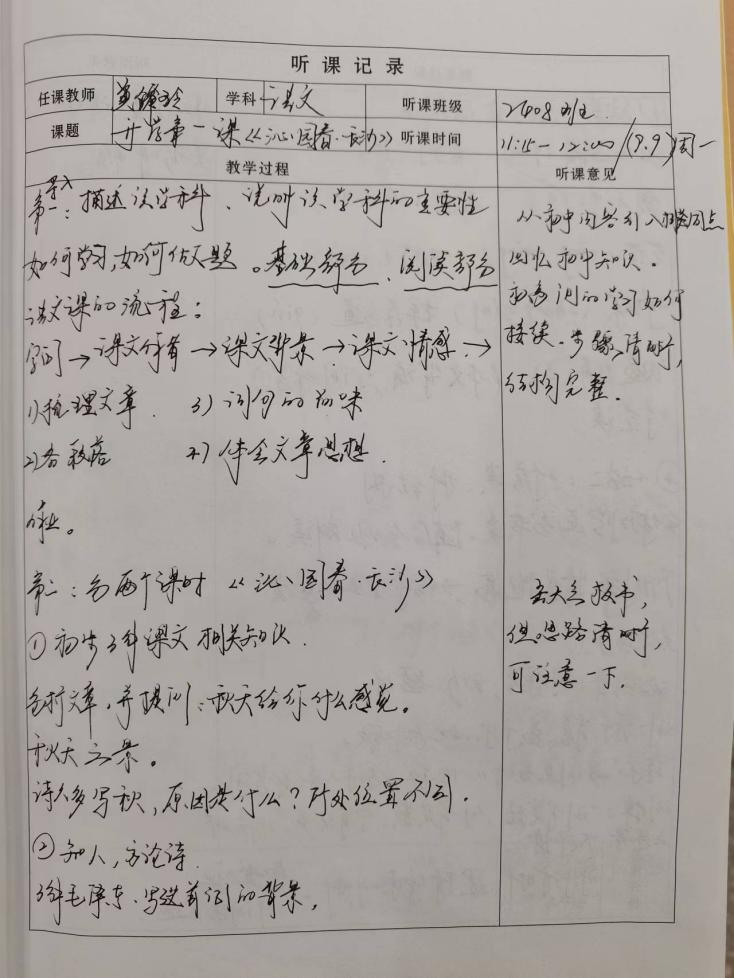 听课记录
任课教师 黄 玲 学科 语文 听课班级 2408班
课题 开学第一课《沁园春·长沙》 听课时间 11:15-12:00/(9.9)周一
教学过程 听课意见
导入
第一：描述该学科、说明该学科的重要性
如何学习，如何做题。基础部分、阅读部分
语文课的流程：
字词→课文作者→课文背景→课文情感.→
1)梳理文章. 3)词句的品味
2)各段落 4)体会文章思想.
作业。
第二：分两个课时《沁园春·长沙》
①初步了解课文相关知识.
分析文章，并提问：秋天给你什么感觉。
秋天之景。
诗人多写秋，原因是什么？所处位置不同.
②知人，方论诗.
了解毛泽东.写这首词的背景。
从初中内容引入相关同点
回忆初中知识。
初高 的学习如何
接续.步骤清晰，
结构完整.
无大的板书，
但思路清晰，
可注意一下.